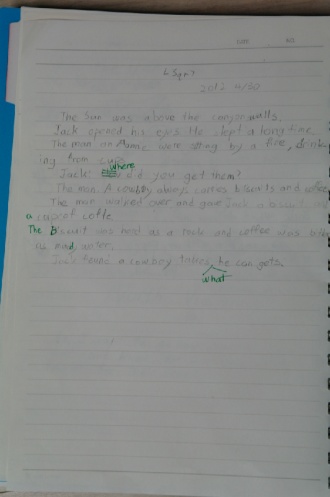 DATE NO
<Sun>
2012
The Sun was above the canyon walls.
Jack opened his eyes. He slept a long time.
The man an were sitting by a fire, drink
ing from cups.
Where
Jack: did you get them?
The man: A cowboy always carries biscuits and coffee.
The man walked over and gave Jack a biscuit
a cup of coffe.
The Biscuit was hard as a rock and coffee was
as mud, water.
Jack found a cowboy takes, he can gets.
what